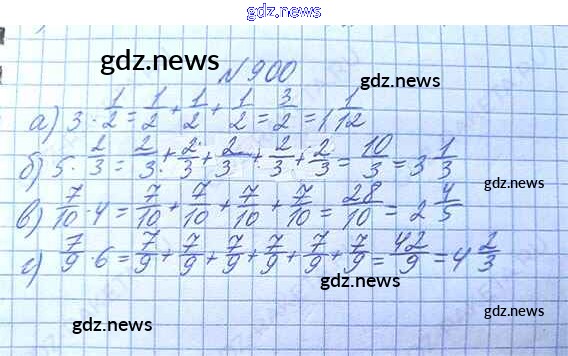 gdz.news
gdz.news
N 900
а) 3 · 1/2 = 1/2 + 1/2 + 1/2 = 3/2 = 1 1/12
б) 5 · 2/3 = 2/3 + 2/3 + 2/3 + 2/3 + 2/3 = 10/3 = 3 1/3
в) 7/10 · 4 = 7/10 + 7/10 + 7/10 + 7/10 = 28/10 = 2 4/5
г) 7/9 · 6 = 7/9 + 7/9 + 7/9 + 7/9 + 7/9 + 7/9 = 42/9 = 4 2/3
gdz.news
gdz.news
gdz.news